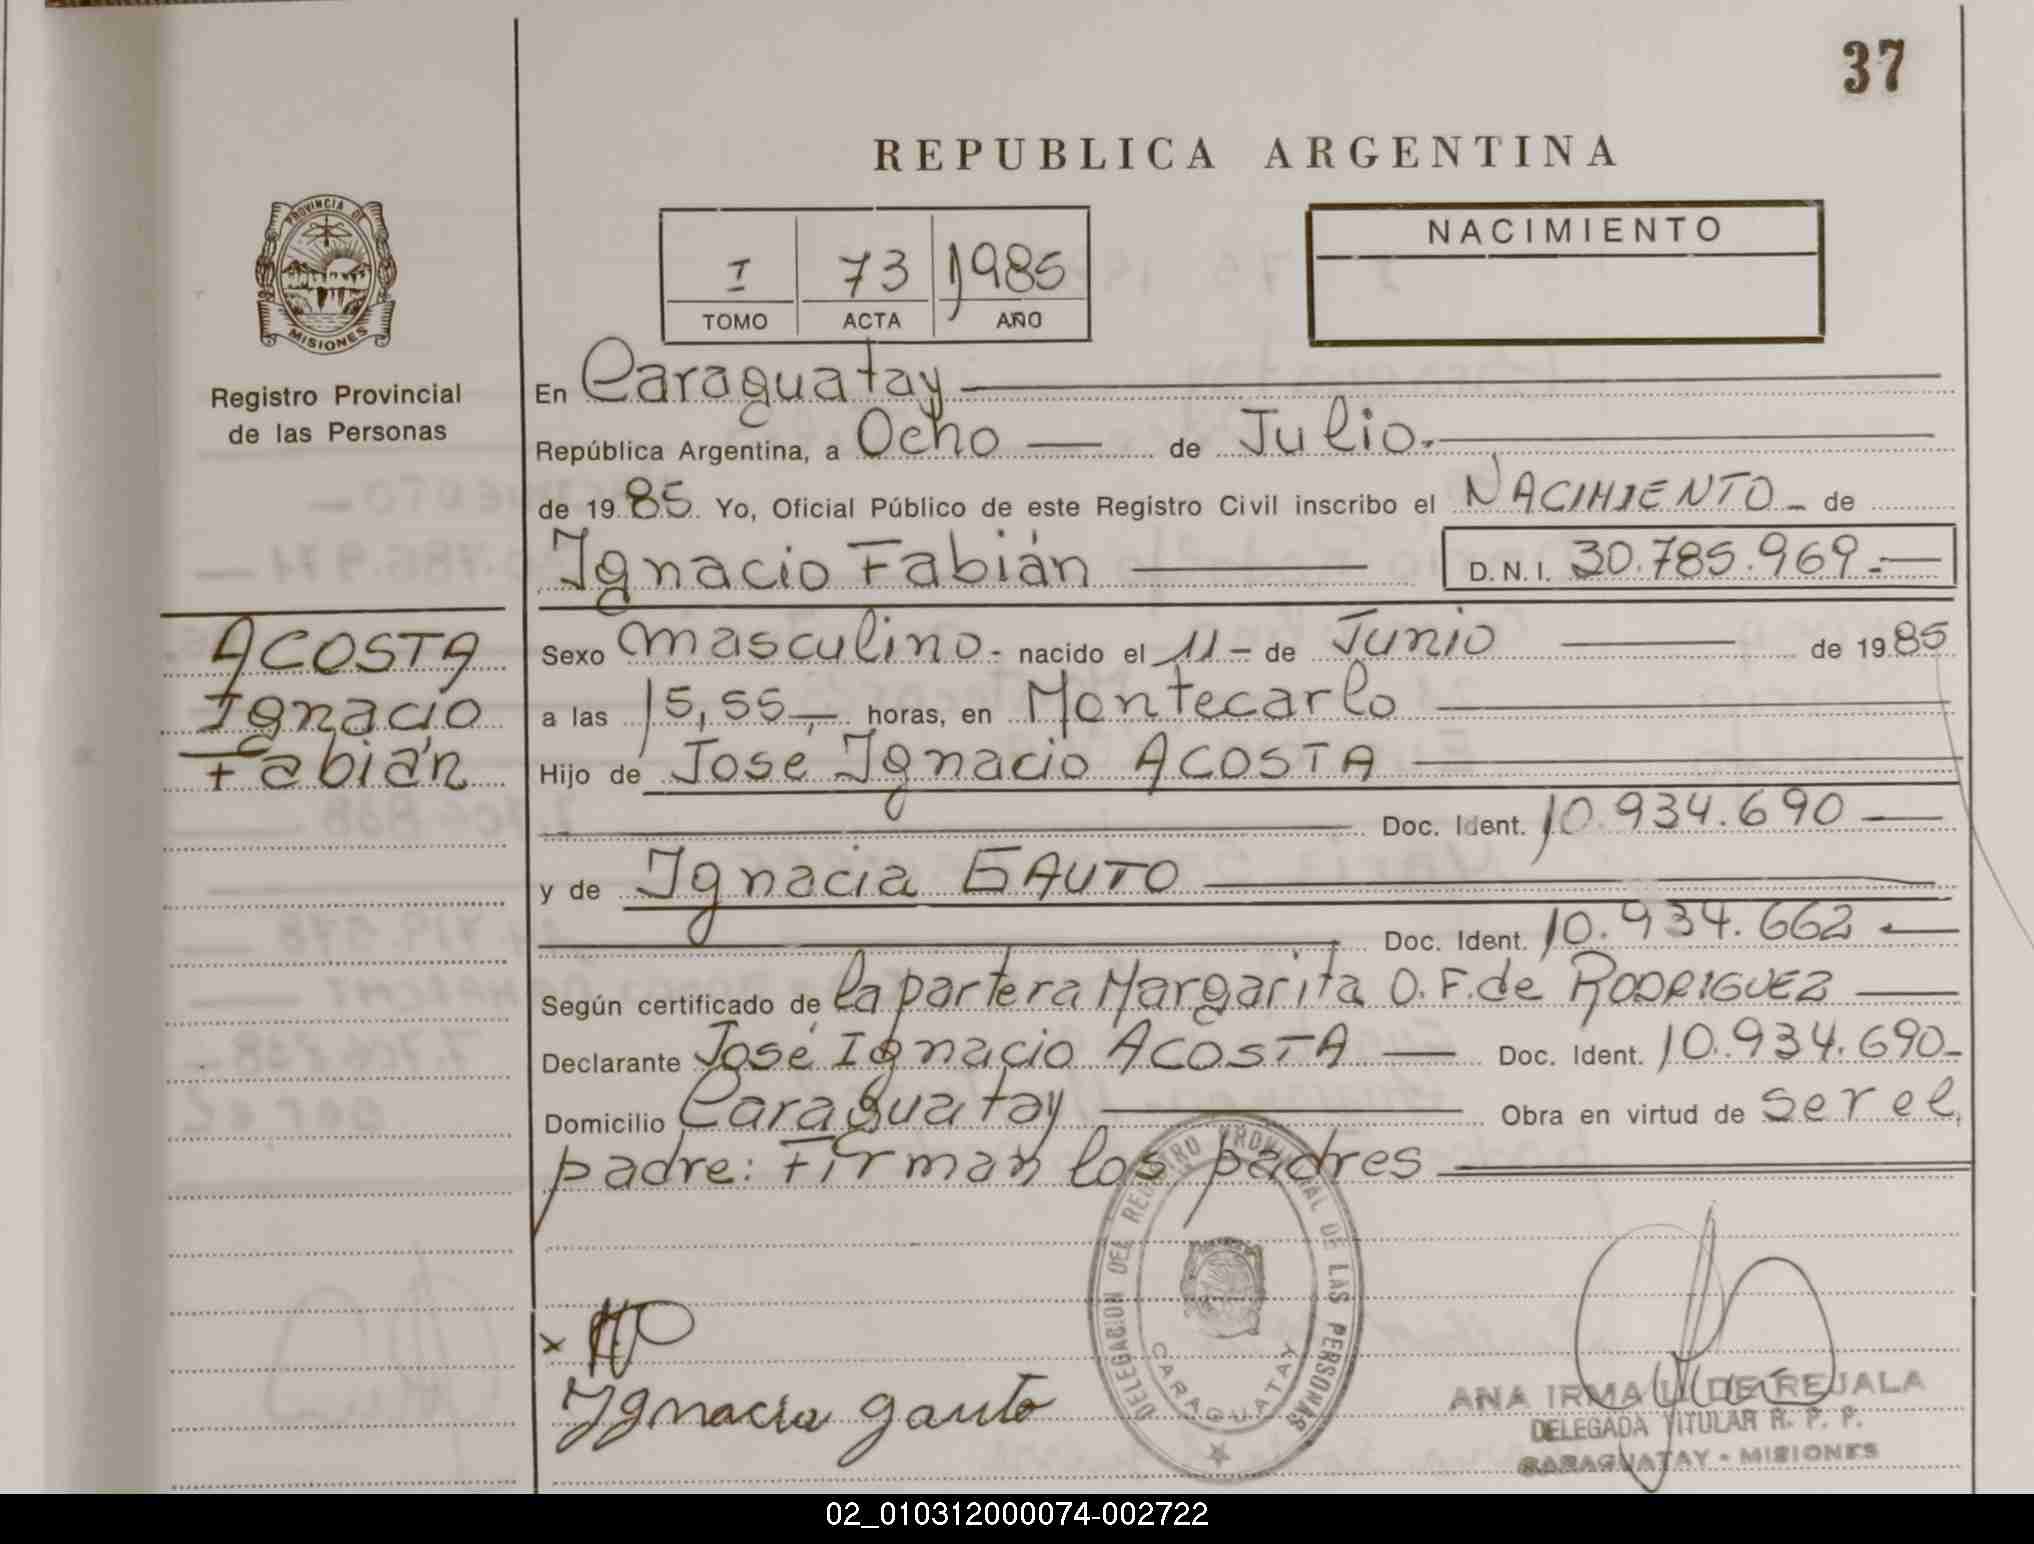 37
REPUBLICA ARGENTINA
PROVINCIA DE
MISIONES
Registro Provincial
de las Personas
I 73 1985
TOMO ACTA AÑO
NACIMIENTO
En Caraguatay
República Argentina, a Ocho de Julio.
de 1985 Yo, Oficial Público de este Registro Civil inscribo el NACIMIENTO de
Ignacio Fabián D.N.I. 30.785.969.
ACOSTA
Ignacio
Fabián
Sexo masculino. nacido el 11 - de Junio de 1985
a las 15,55 horas, en Montecarlo
Hijo de José Ignacio ACOSTA
Doc. Ident. 10.934.690
y de Ignacia GAUTO
Doc. Ident. 10.934.662
Según certificado de la partera Margarita O. F. de RODRIGUEZ
Declarante José Ignacio ACOSTA Doc. Ident. 10.934.690
Domicilio Caraguatay Obra en virtud de ser el
padre: Firman los padres
DELEGACION DEL REGISTRO PROVINCIAL DE LAS PERSONAS
CARAGUATAY
x
Ignacia gauto
ANA IRMA DE REJALA
DELEGADA TITULAR R. P. P.
CARAGUATAY - MISIONES
02_010312000074-002722